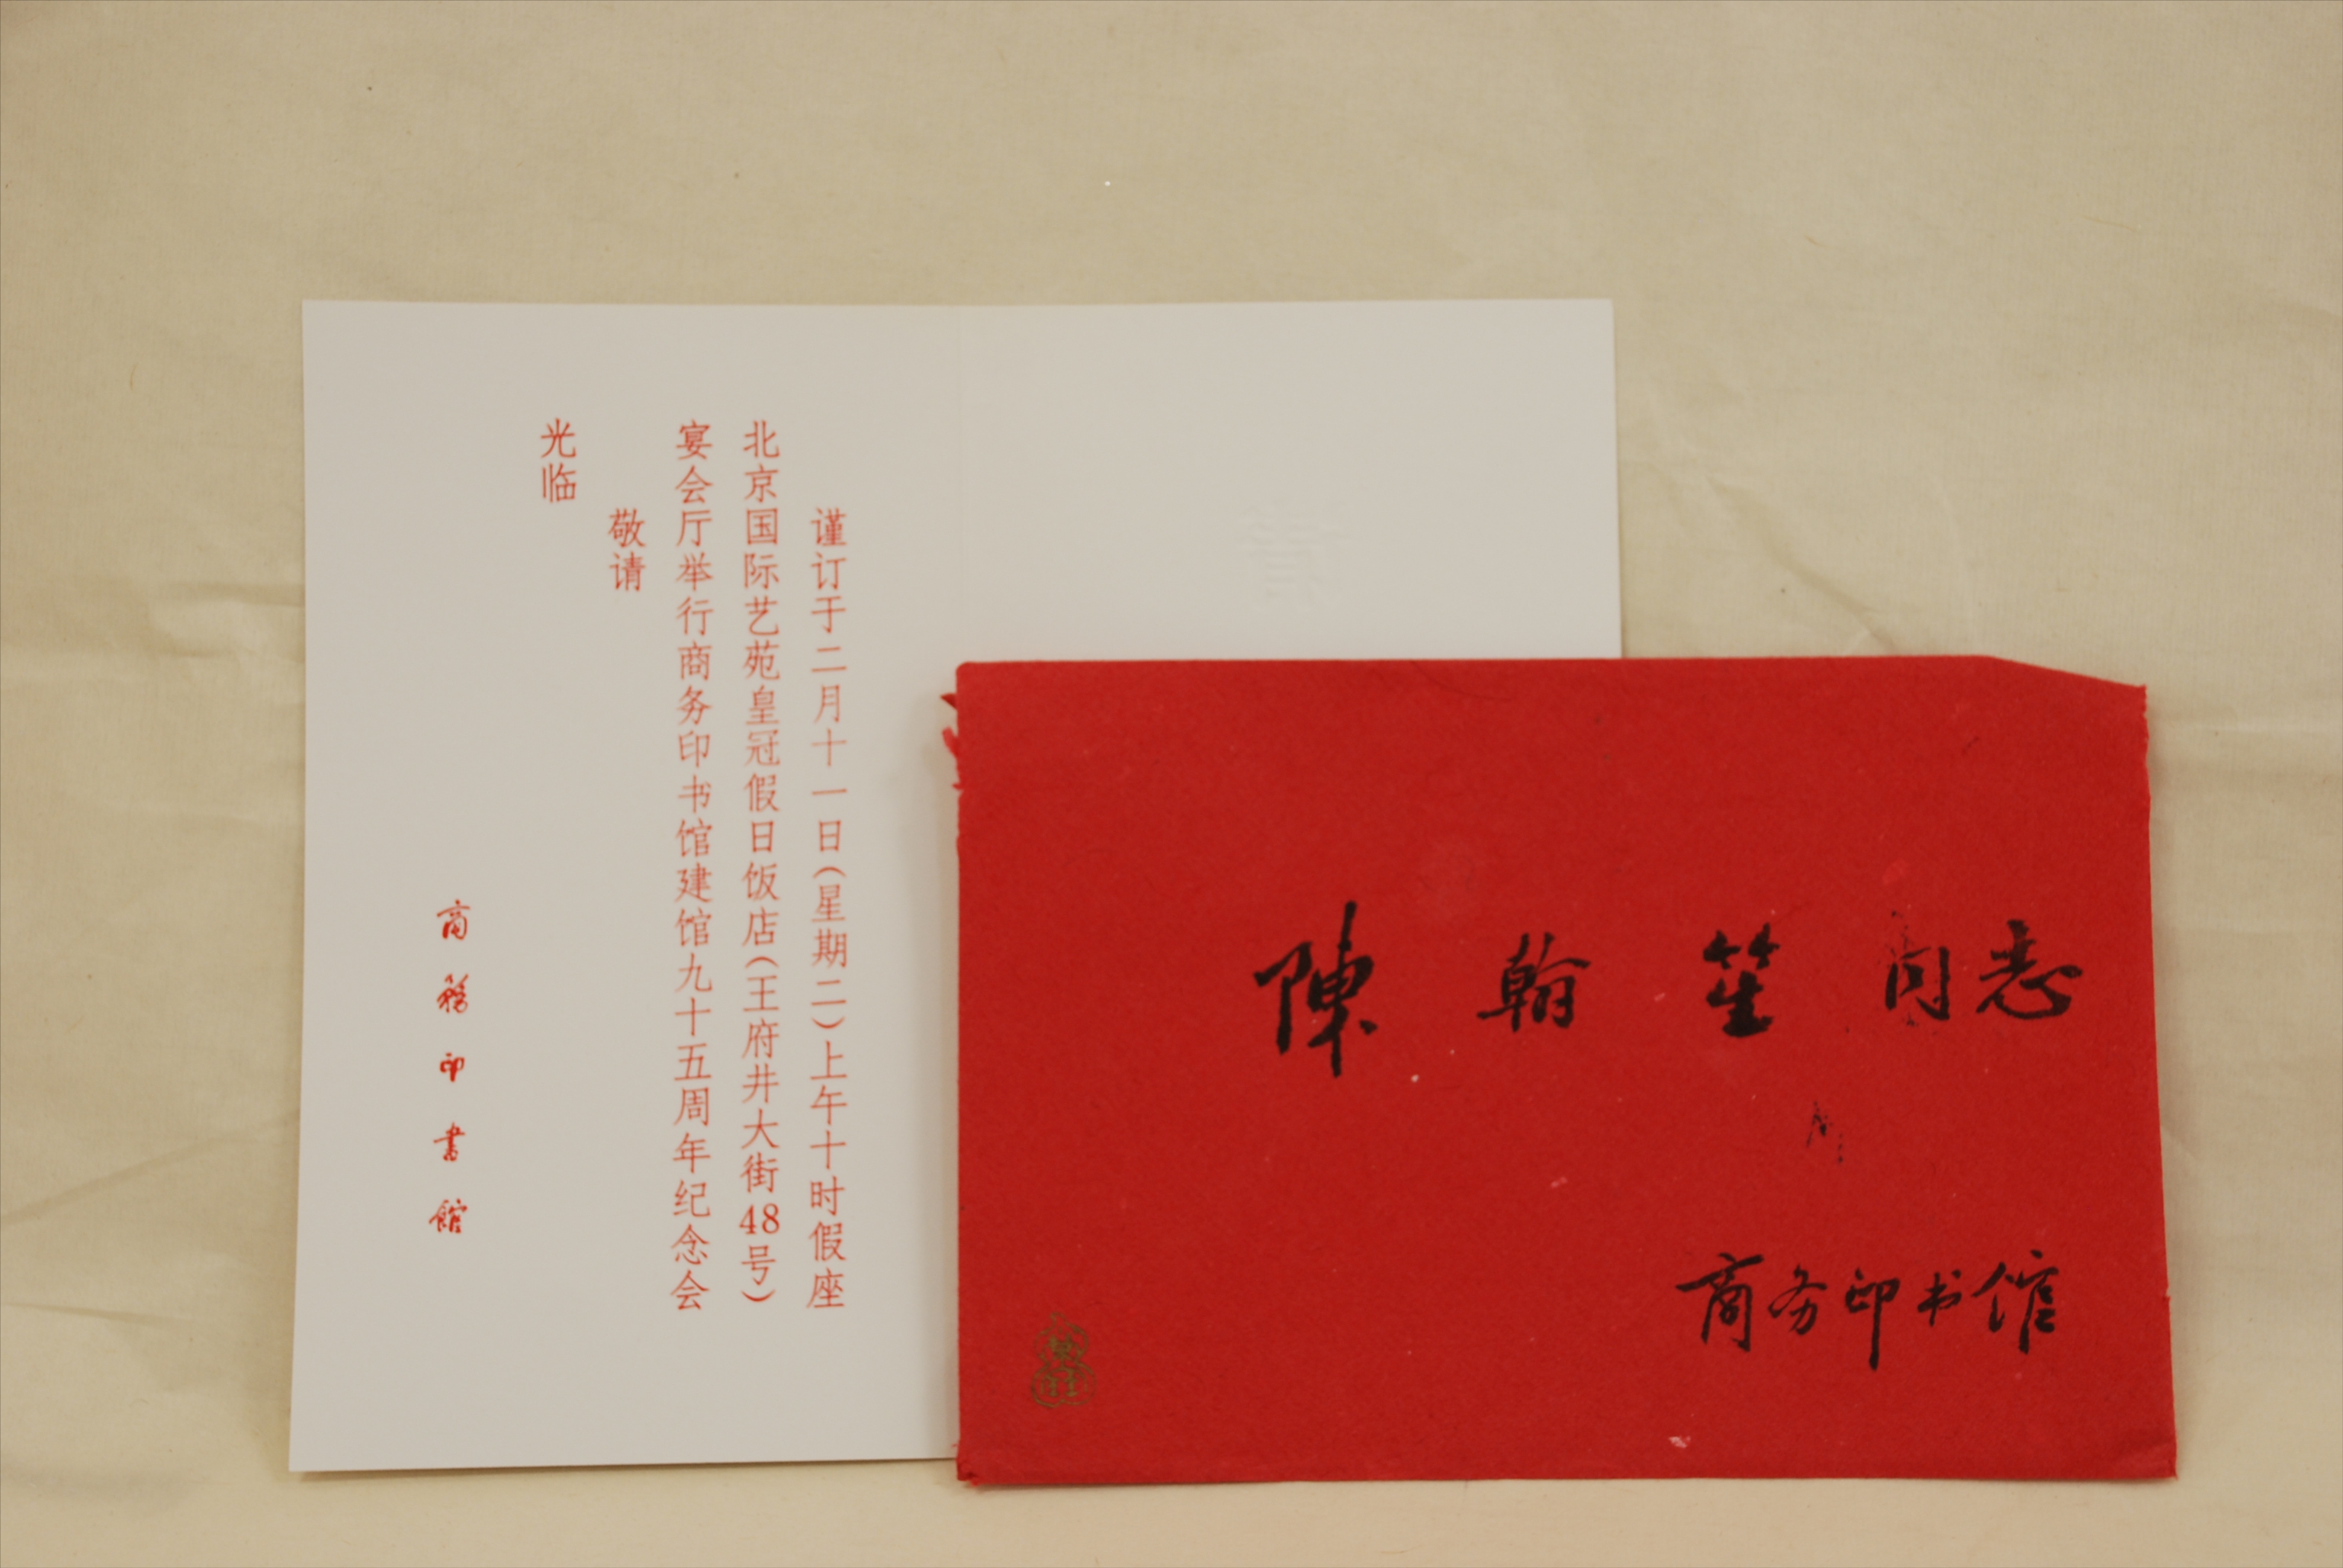 谨订于二月十一日(星期二)上午十时假座
北京国际艺苑皇冠假日饭店(王府井大街48号)
宴会厅举行商务印书馆建馆九十五周年纪念会
敬请
光临
商務印書館
請
陳翰笙同志
商务印书馆